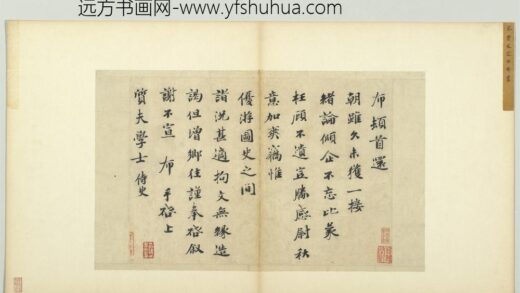 远方书画网-www.yfshuhua.com
布頓首還
朝雖久未獲一接
緒論傾企不忘比蒙
枉顧不遺豈勝感尉秋
意加爽竊惟
優游國史之間
諧況甚適拘文無緣造
謁但增鄉往謹奉啓叙
謝不宣 布 手啓上
質夫學士 侍史